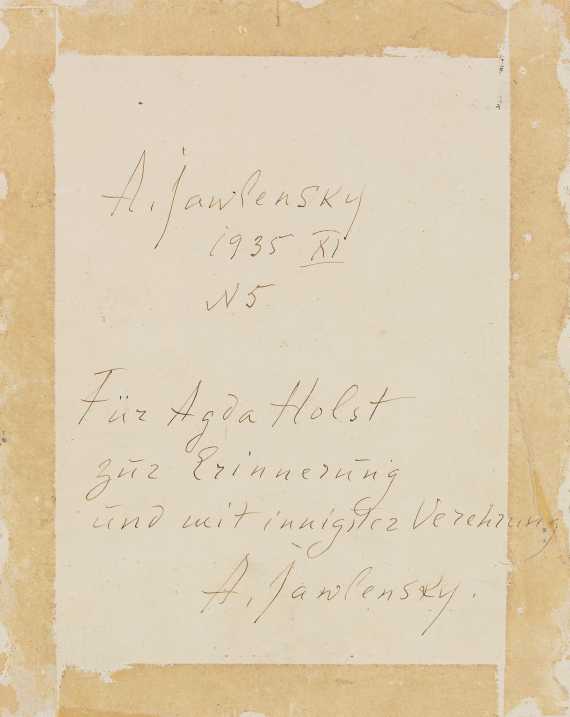 A. Jawlensky
1935 XI
N 5
Für Agda Holst
zur Erinnerung
und mit innigster Verehrung
A. Jawlensky.